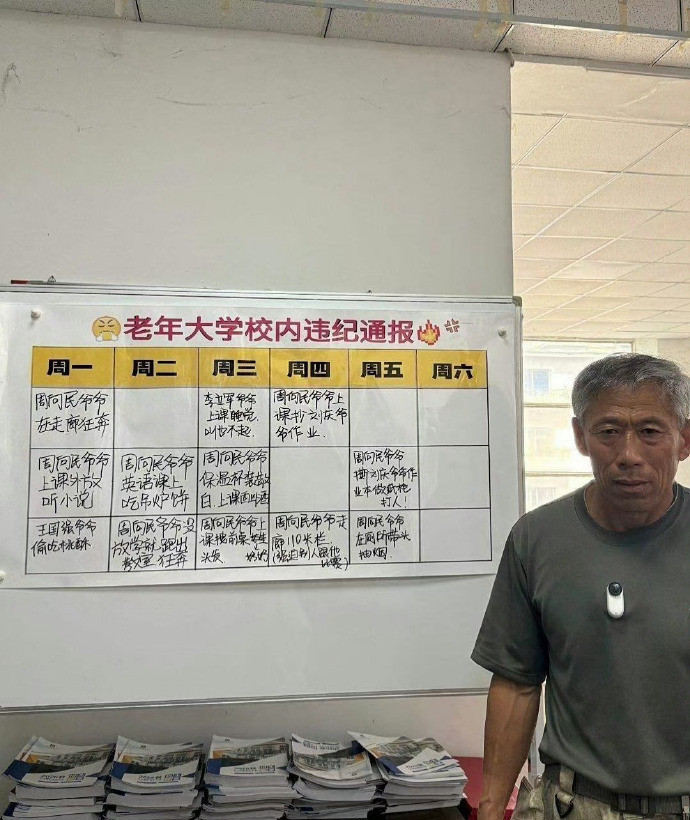 老年大学校内违纪通报
周一 周二 周三 周四 周五 周六
周向民爷爷
在走廊狂奔
李立军爷爷
上课睡觉
叫也不起
周向民爷爷上
课抄刘庆爷
爷作业
周向民爷爷
上课外放
听小说
周向民爷爷
英语课上
吃吊炉饼
周向民爷爷
保温杯装散
白上课四喝酒
周向民爷爷
撕刘庆爷爷作
业本做纸炮
打人!
王国强爷爷
偷吃桃酥
周向民爷爷没
放学就跑出
教室狂奔
周向民爷爷上
课揪前桌女生
头发
周向民爷爷走
廊110米栏
(强迫别人跟他
比赛)
周向民爷爷
在厕所带头
抽烟